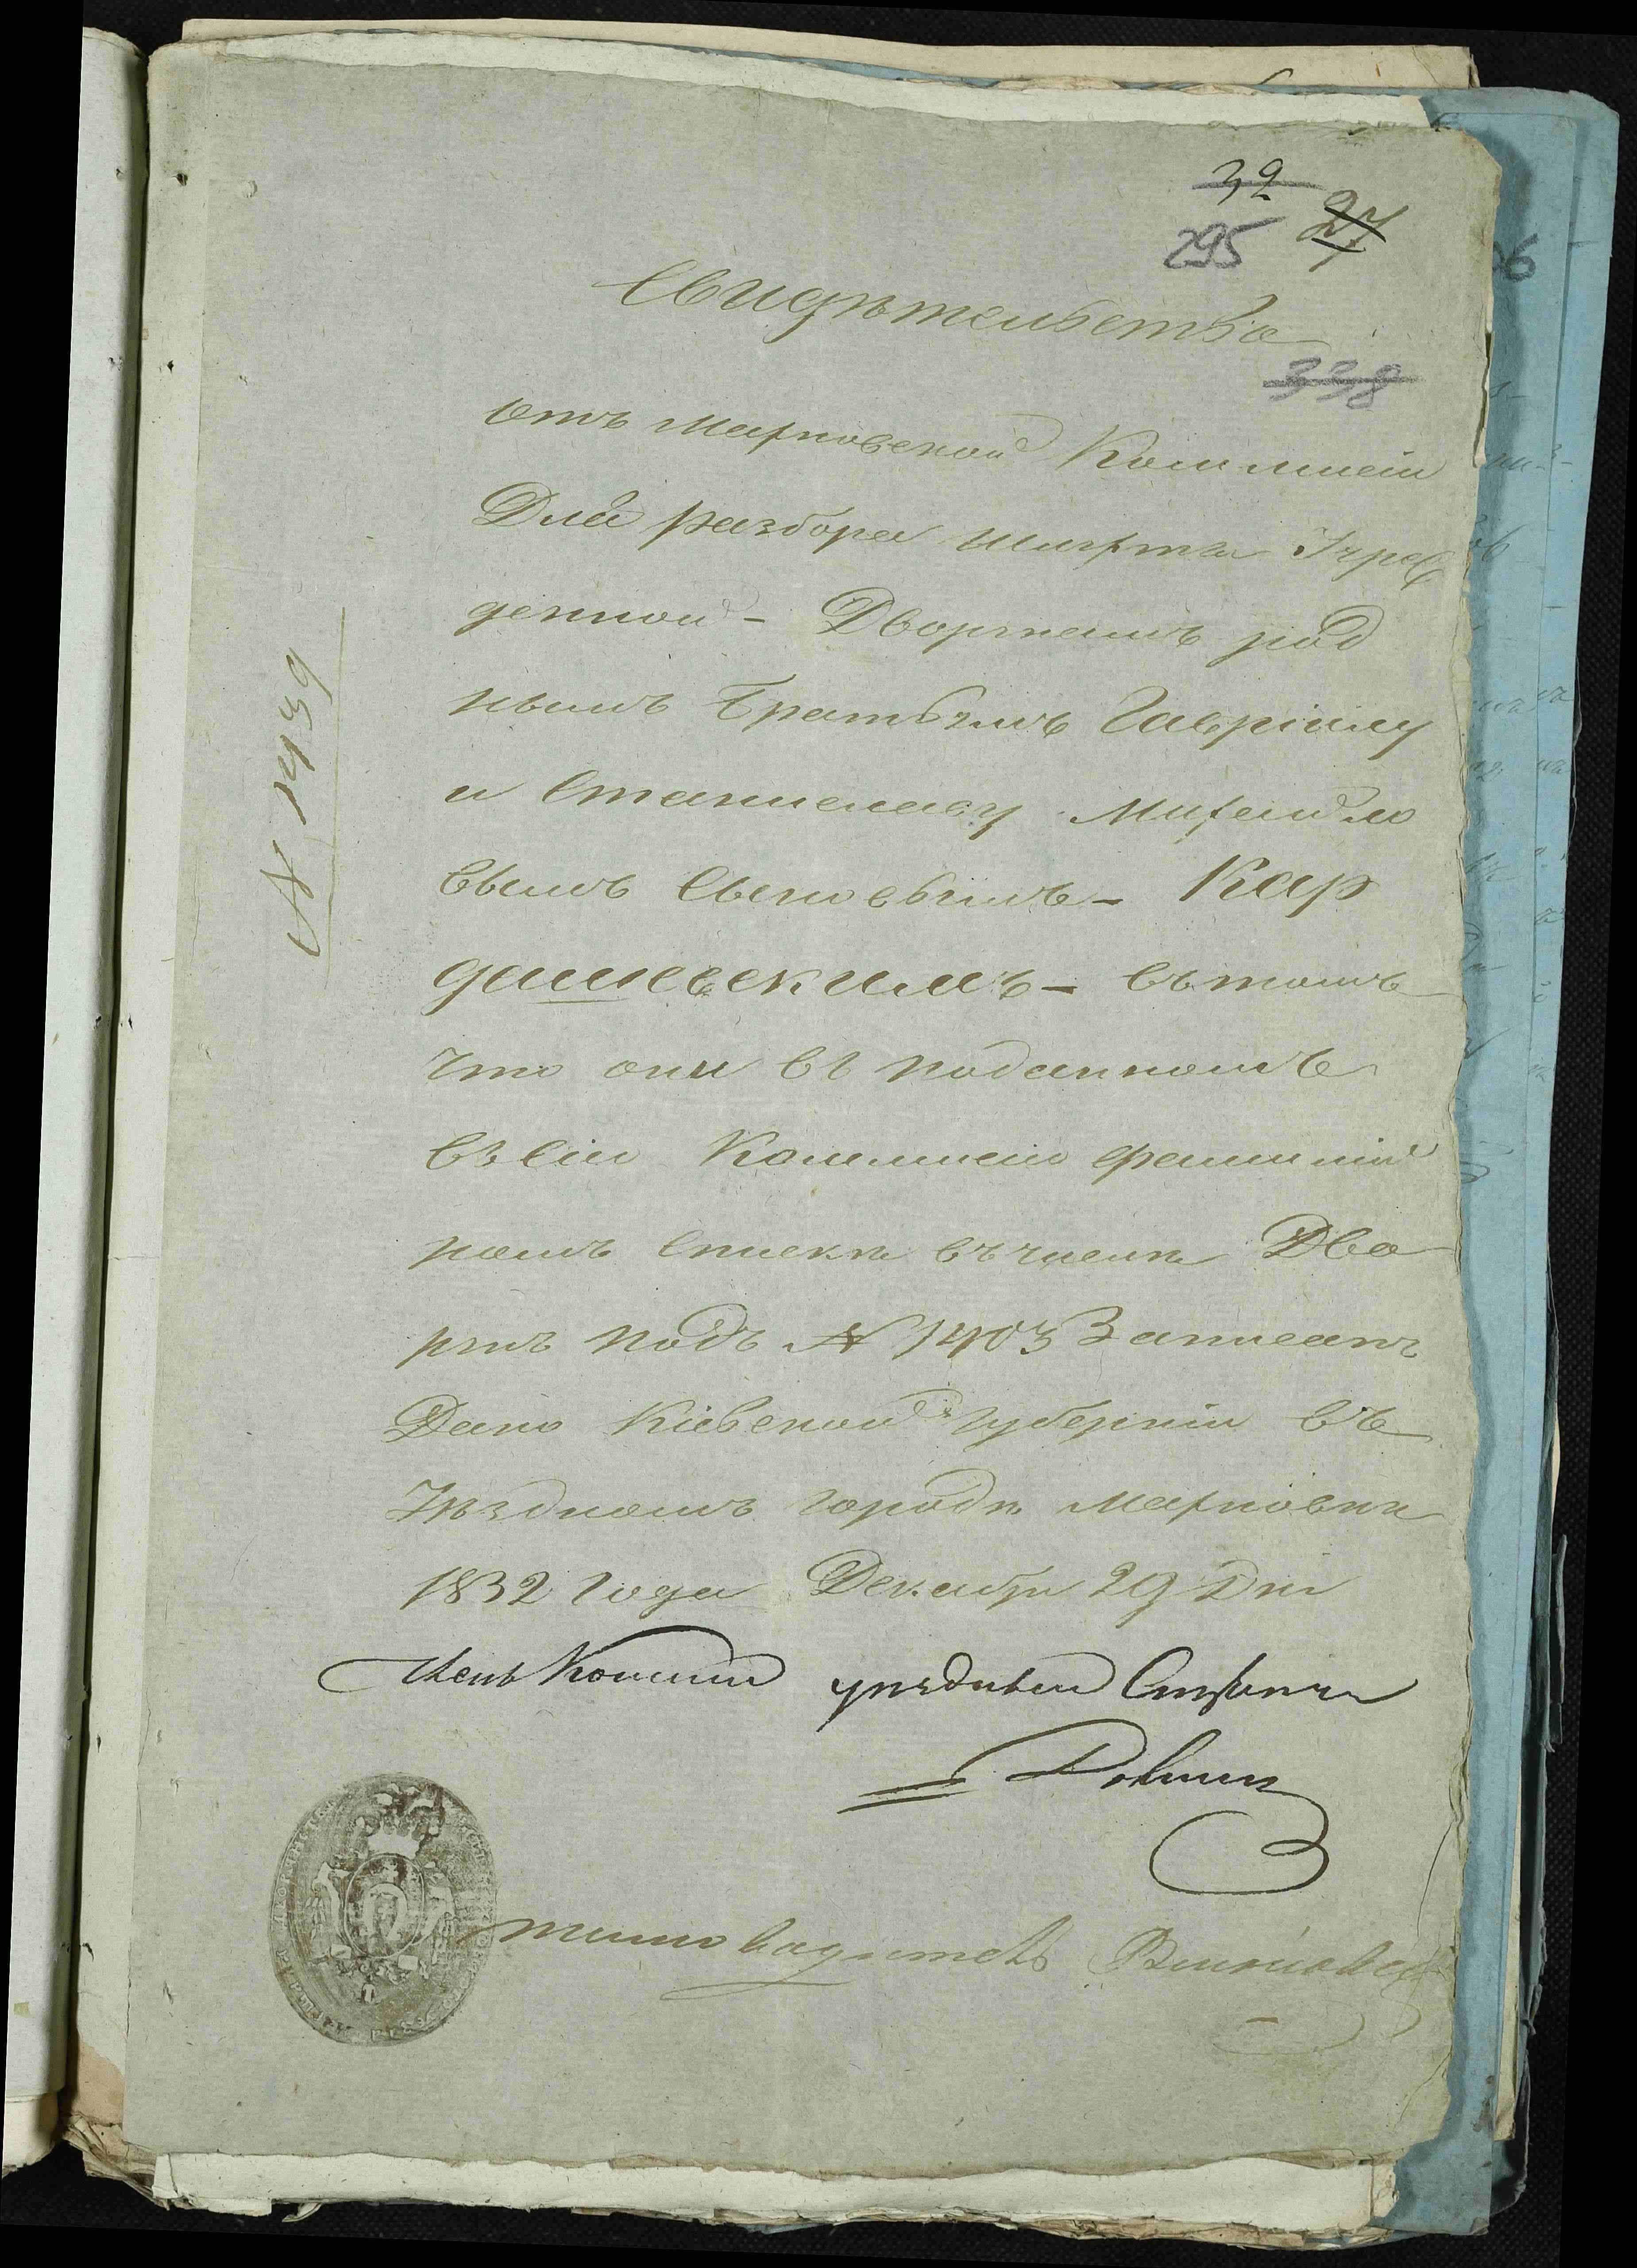 32
295 27
Свидѣтельство
338
отъ Махновской Коммисіи
Для разбора шляхты Учреж
денной - Дворянамъ род
нымъ Братьямъ Гавріилу
и Станиславу Михайло
вымъ Сыновьямъ - Кар
дашевскимъ - въ томъ
что они въ поданномъ
въ сію Коммисію фамилій
номъ спискѣ въ числѣ Дво
рянъ подъ № 1403 Записанъ
Дано Кіевской Губерніи въ
Уѣздномъ городѣ Махновкѣ
1832 Года Декабря 29 Дня
Членъ Комисіи уѣздный Стряпчій
Письмоводитель
№ 1439